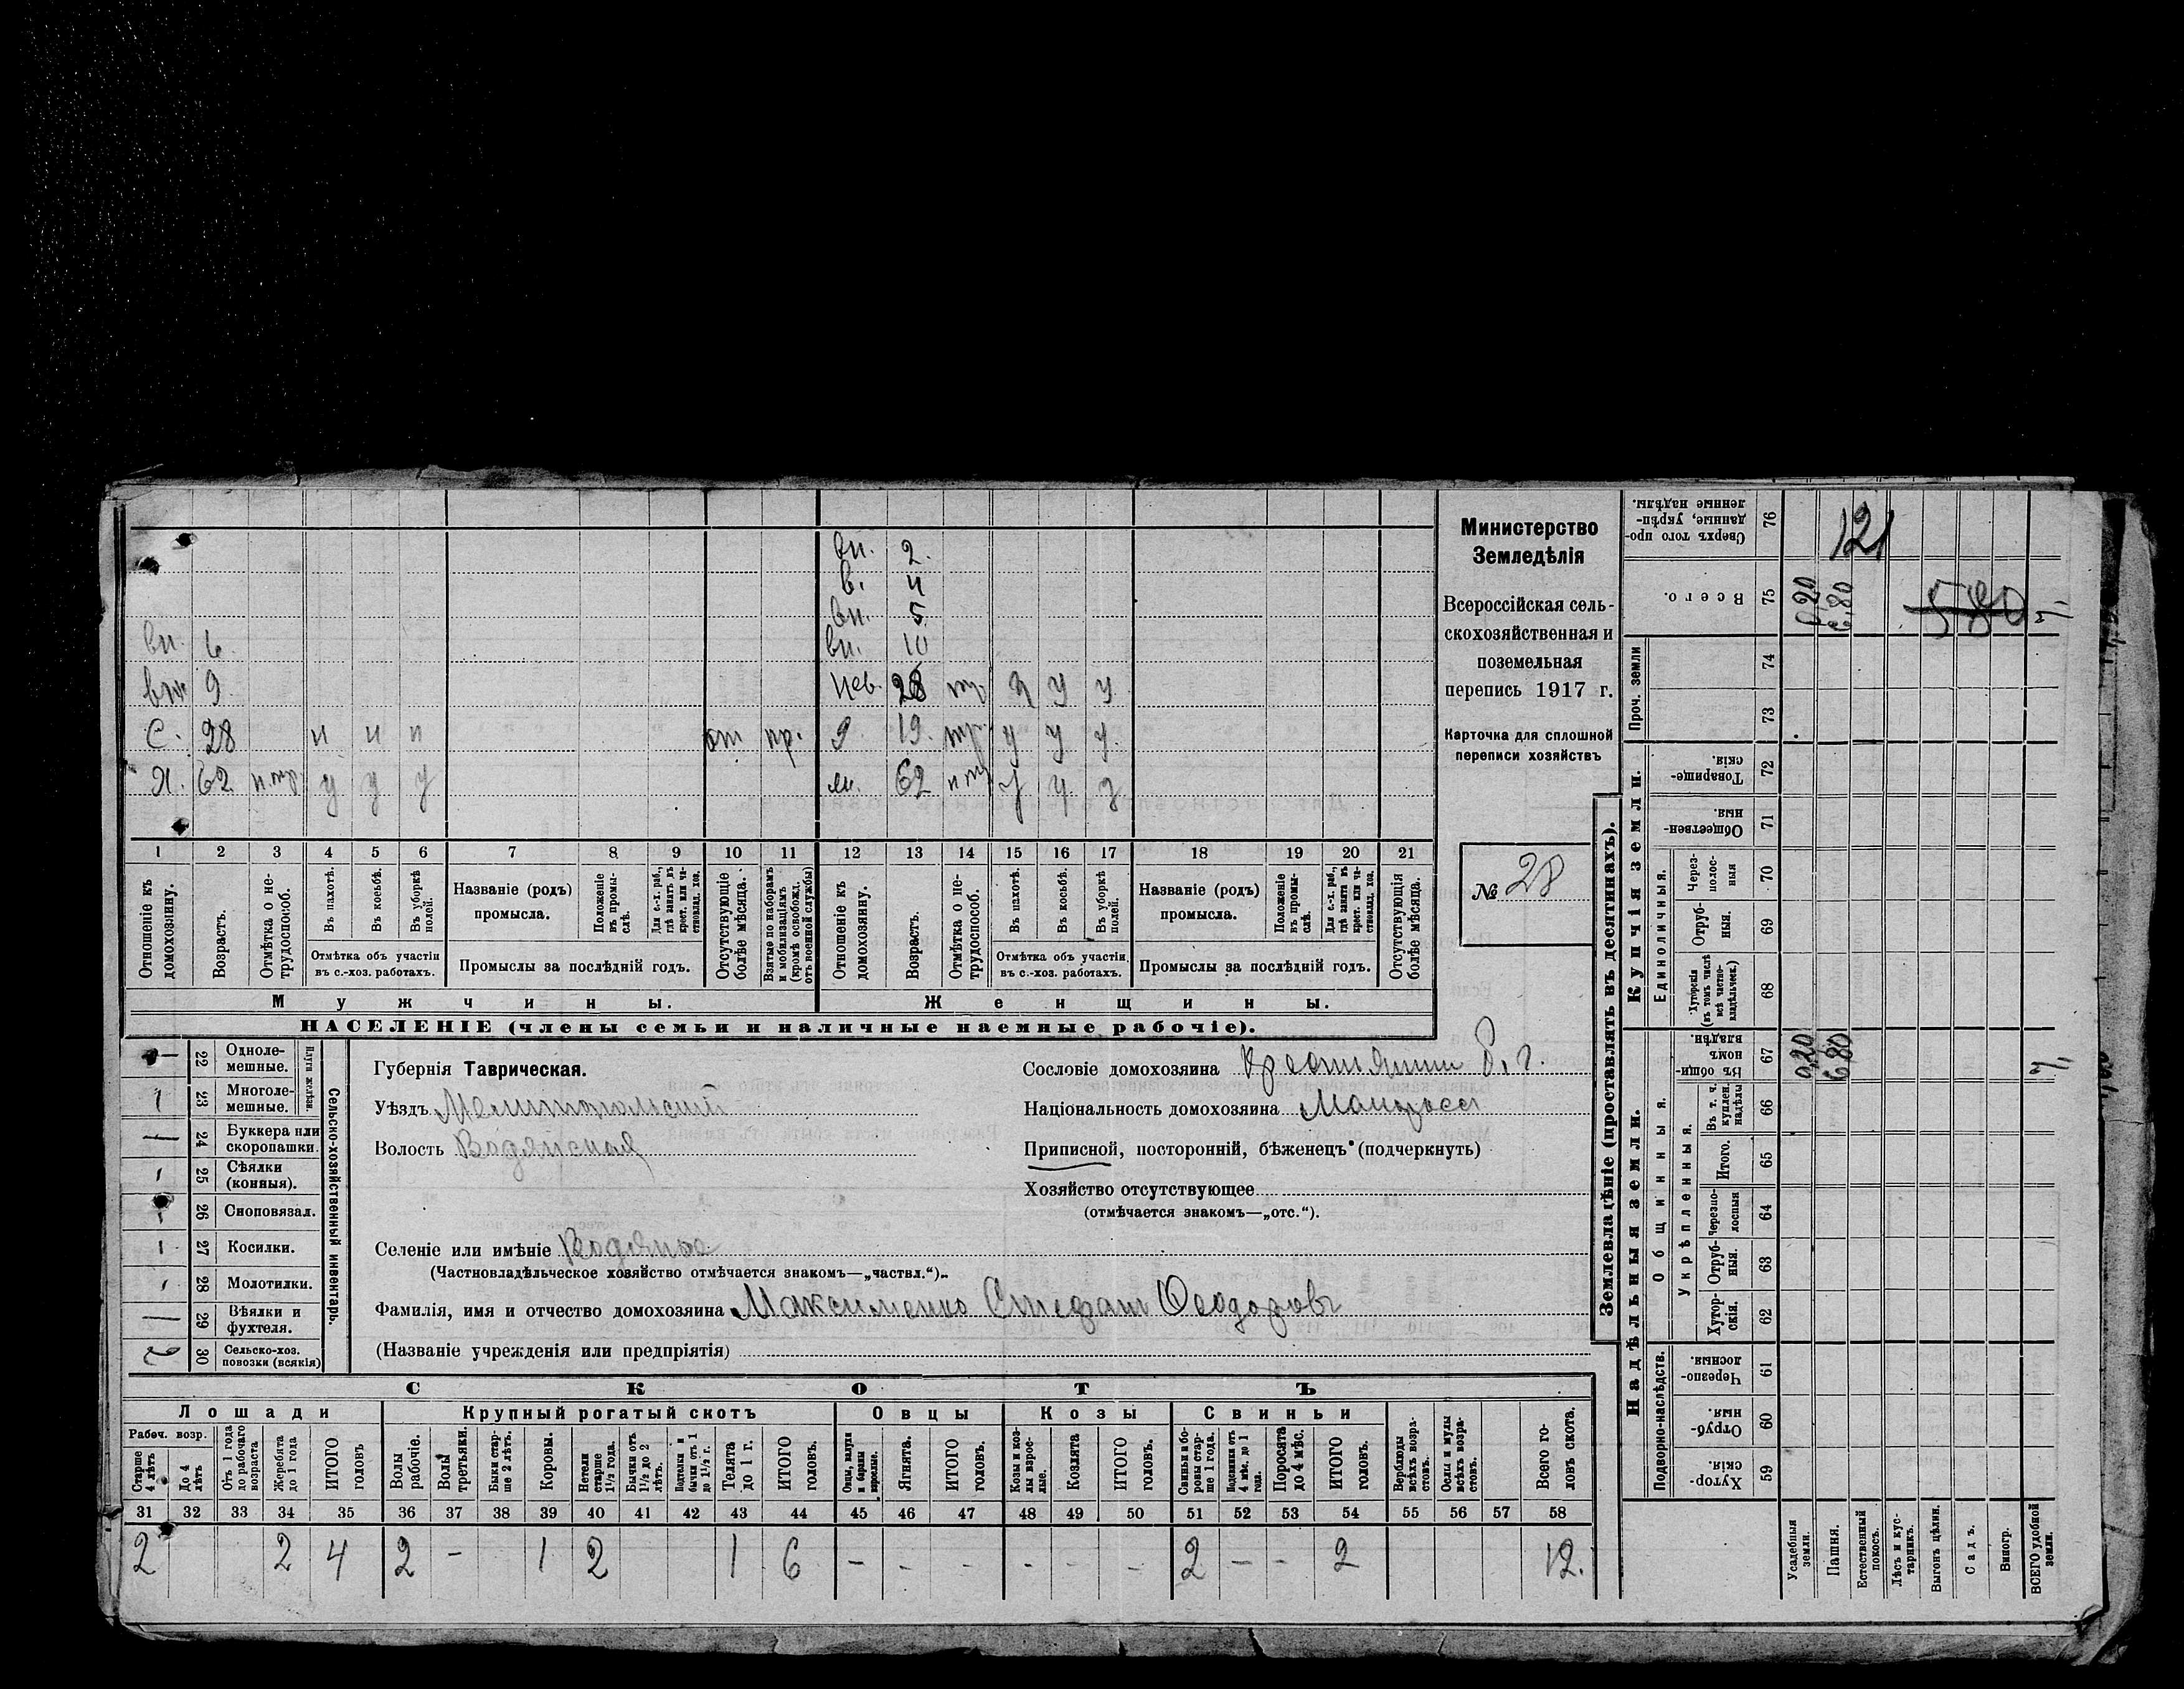 вн. 2.
в. 4
вн. 5
вн. 6. вн. 10
вн. 9 нев. 28 тр. у у у
С. 28 н н н от пр. 19. тр. у у у
Я. 62 н.тр. у у у м. 62 н.тр. у у у
1 2 3 4 5 6 7 8 9 10 11 12 13 14 15 16 17 18 19 20 21
Отношеніе къ домохозяину.
Возрастъ.
Отмѣтка о не-трудоспособ.
Въ пахотѣ.
Въ косьбѣ.
Въ уборкѣ полей.
Отмѣтка объ участіи въ с.-хоз. работахъ.
Названіе (родъ) промысла.
Положеніе въ промы-слѣ.
Для с.-х. раб., гдѣ занятъ въ крест. или ча-стновлад. хоз.
Промыслы за послѣдній годъ.
Отсутствующіе болѣе мѣсяца.
Взятые по наборамъ и мобилизаціямъ (кромѣ освобожд. отъ военной службы)
Отношеніе къ домохозяину.
Возрастъ.
Отмѣтка о не-трудоспособ.
Въ пахотѣ.
Въ косьбѣ.
Въ уборкѣ полей.
Отмѣтка объ участіи въ с.-хоз. работахъ.
Названіе (родъ) промысла.
Положеніе въ промы-слѣ.
Для с.-х. раб., гдѣ занята въ крест. или ча-стновлад. хоз.
Промыслы за послѣдній годъ.
Отсутствующія болѣе мѣсяца.
Мужчины. Женщины.
НАСЕЛЕНІЕ (члены семьи и наличные наемные рабочіе).
Министерство
Земледѣлія
Всероссійская сель-
скохозяйственная и
поземельная
перепись 1917 г.
Карточка для сплошной
переписи хозяйствъ
№ 28
Сельско-хозяйственный инвентарь.
Плуги желѣзн.
— 22 Одноле-мешные.
1 23 Многоле-мешные.
— 24 Буккера или скоропашки.
1 25 Сѣялки (конныя).
26 Сноповязал.
1 27 Косилки.
28 Молотилки.
— 29 Вѣялки и фухтеля.
2 30 Сельско-хоз. повозки (всякія)
Губернія Таврическая.
Уѣздъ Мелитопольскій
Волость Водянская
Селеніе или имѣніе Водяное
(Частновладѣльческое хозяйство отмѣчается знакомъ—„частвл.“)..
Фамилія, имя и отчество домохозяина Максименко Стефанъ Ѳеодоровъ
(Названіе учрежденія или предпріятія)
Сословіе домохозяина Крестьянинъ
Національность домохозяина Малороссъ
Приписной, посторонній, бѣженецъ (подчеркнуть)
Хозяйство отсутствующее
(отмѣчается знакомъ—„отс.“).
СКОТЪ
Лошади Крупный рогатый скотъ Овцы Козы Свиньи
Рабоч. возр.
Старше 4 лѣтъ
До 4 лѣтъ
Отъ 1 года до рабочаго возраста
Жеребята до 1 года
ИТОГО головъ
Волы рабочіе.
Волы третьяки.
Быки стар-ше 2 лѣтъ.
Коровы.
Нетели старше 1½ года.
Бычки отъ 1½ до 2 лѣтъ.
Подтелки и бычки отъ 1 до 1½ г.
Телята до 1 г.
ИТОГО головъ.
Овцы, валухи и бараны взрослые.
Ягнята.
ИТОГО головъ.
Козы и коз-лы взрос-лые.
Козлята
ИТОГО головъ.
Свиньи и бо-ровы стар-ше 1 года.
Подсвинки отъ 4 мѣс. до 1 года.
Поросята до 4 мѣс.
ИТОГО головъ.
Верблюды всѣхъ возра-стовъ.
Ослы и мулы всѣхъ возра-стовъ.
Всего го-ловъ скота.
31 32 33 34 35 36 37 38 39 40 41 42 43 44 45 46 47 48 49 50 51 52 53 54 55 56 57 58
2 2 4 2 - 1 2 1 6 - - - - - - 2 - - 2 12.
Землевладѣніе (проставлять въ десятинахъ).
Надѣльныя земли. Купчія земли. Проч. земли
Подворно-наслѣдств.
Общинныя.
Укрѣпленныя.
Единоличныя.
Сверхъ того про-данные, укрѣп-ленные надѣлы. 76 12,
Всего. 75 0,20 6,80 580 7,
74
73
Товарище-скія 72
Обществен-ныя. 71
Через-полос-ныя 70
Отруб-ныя. 69
Хуторскія (въ томъ числѣ всѣ частно-владѣльческ.) 68
Въ общи-номъ владѣн. 67 0,20 6,80 7,
Въ т. ч. куплен. надѣлы 66
Итого. 65
Черезпо-лосныя 64
Отруб-ныя. 63
Хутор-скія. 62
Черезпо-лосныя. 61
Отруб-ныя. 60
Хутор-скія. 59
Усадебныя земли.
Пашня.
Естественный покосъ.
Лѣсъ и кус-тарникъ.
Выгонъ цѣлин.
Садъ.
Виногр.
ВСЕГО удобной земли.